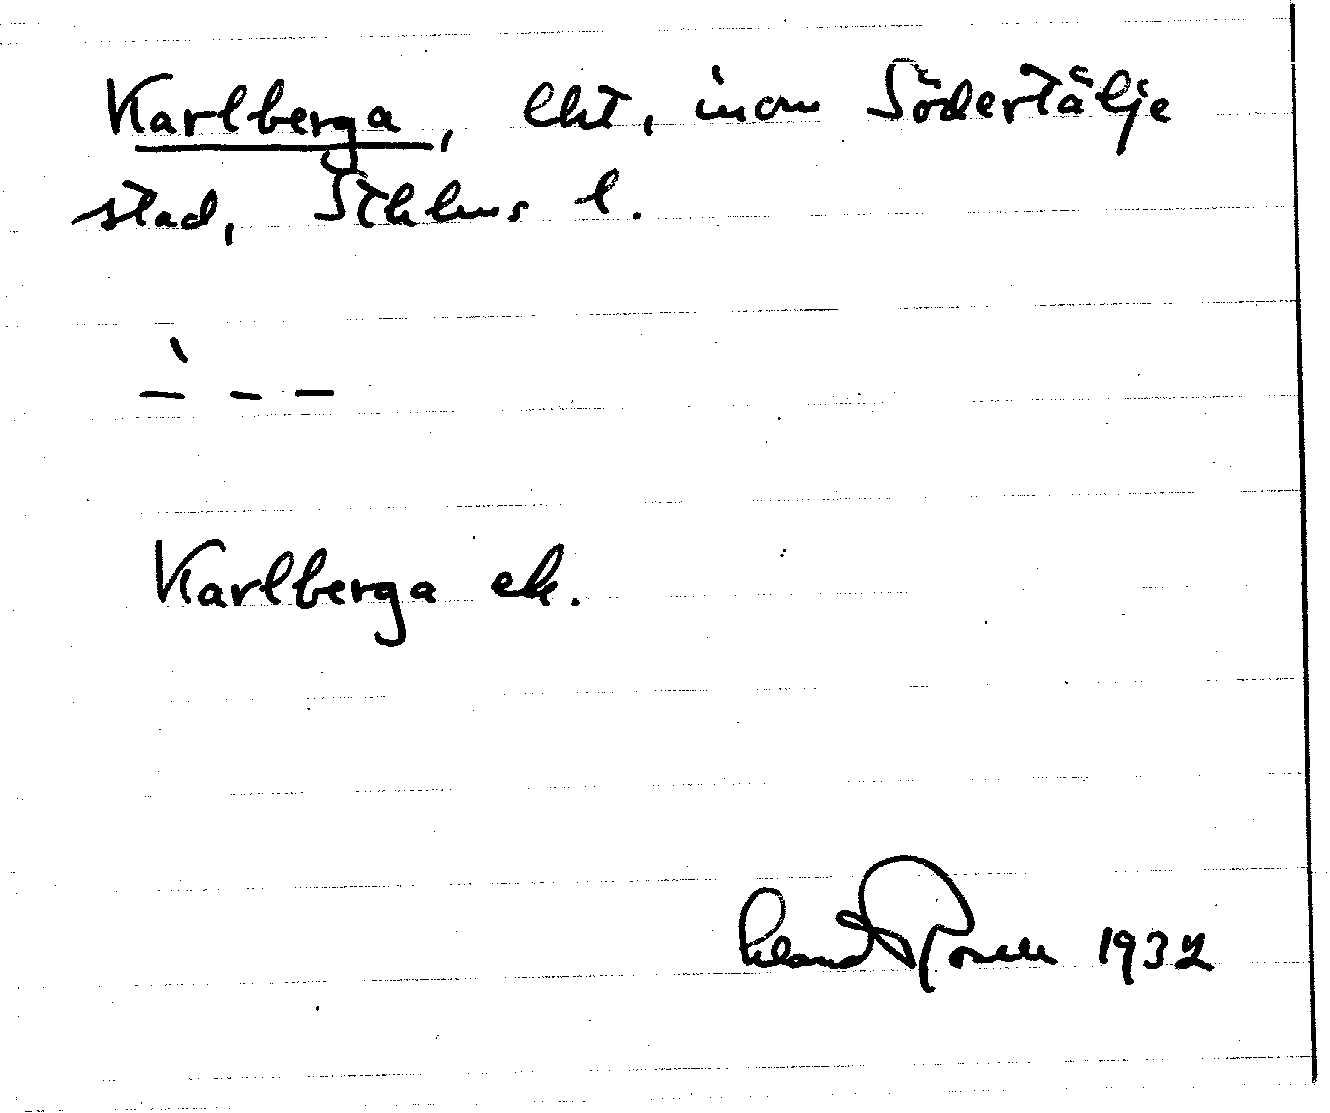 Karlberga, lht, inom Södertälje
stad, Sthlms l.
– ̀ – –
Karlberga ek.
1932